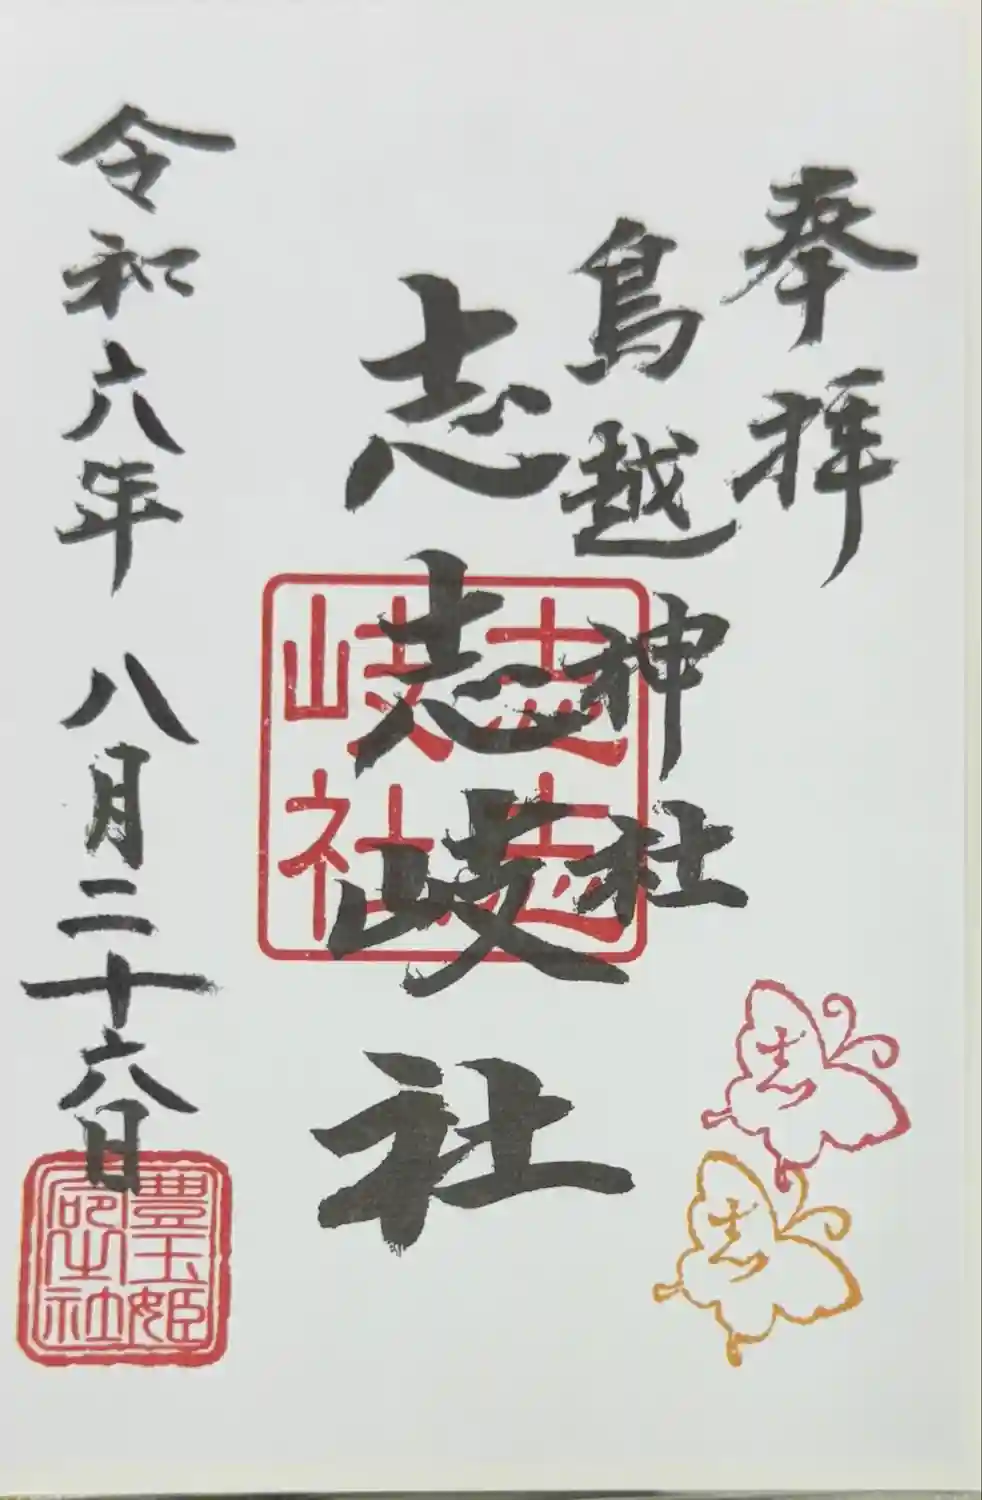 奉拝
鳥越神社
志志岐社
志志
岐社
令和六年 八月二十六日
豊玉姫
之社
志
志